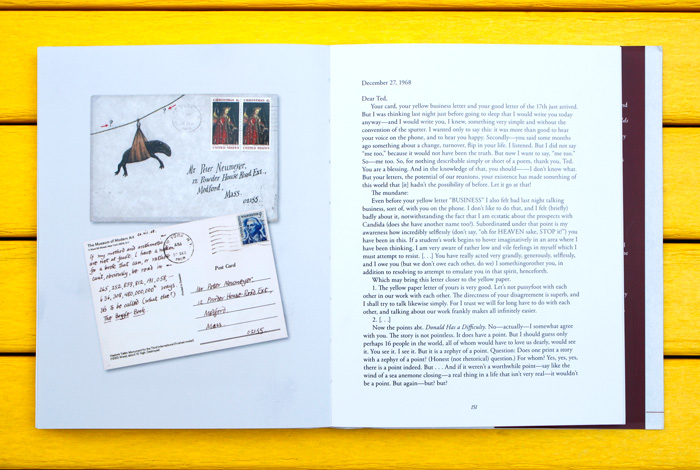 CHRISTMAS 5c CHRISTMAS 5c
UNITED STATES UNITED STATES
Mr Peter Neumeyer,
12 Powder House Road Ext.,
Medford,
Mass.
02155
The Museum of Modern Art
If my method and arithmetic
are not at fault, I have a notion
for a book that can, or rather
could, obviously, be read in
265, 252, 859, 812, 191, 058,
636, 308, 480,000,000 ways.
It's to be called (what else?)
The Book.
Post Card
Mr Peter Neumeyer
12 Powder House Road Ext.,
Medford
Mass
02155
December 27, 1968
Dear Ted,
Your card, your yellow business letter and your good letter of the 17th just arrived.
But I was thinking last night just before going to sleep that I would write you today
anyway—and I would write you, I knew, something very simple and without the
convention of the sputter. I wanted only to say this: it was more than good to hear
your voice on the phone, and to hear you happy. Secondly—you said some months
ago something about a change, turnover, flip in your life. I listened. But I did not say
"me too," because it would not have been the truth. But now I want to say, "me too."
So—me too. So, for nothing describable simply or short of a poem, thank you, Ted.
You are a blessing. And in the knowledge of that, you should——I don't know what.
But your letters, the potential of our reunions, your existence has made something of
this world that [it] hadn't the possibility of before. Let it go at that!
The mundane:
Even before your yellow letter "BUSINESS" I also felt bad last night talking
business, sort of, with you on the phone. I don't like to do that, and I felt (briefly)
badly about it, notwithstanding the fact that I am ecstatic about the prospects with
Candida (does she have another name too?). Subordinated under that point is my
awareness how incredibly selflessly (don't say, "oh for HEAVEN sake, STOP it!") you
have been in this. If a student's work begins to hover imaginatively in an area where I
have been thinking, I am very aware of rather low and vile feelings in myself which I
must attempt to resist. [. . .] You have really acted very grandly, generously, selflessly,
and I owe you (but we don't owe each other, do we) I somethingorother you, in
addition to resolving to attempt to emulate you in that spirit, henceforth.
Which may bring this letter closer to the yellow paper.
1. The yellow paper letter of yours is very good. Let's not pussyfoot with each
other in our work with each other. The directness of your disagreement is superb, and
I shall try to talk likewise simply. For I trust we will for long have to do with each
other, and talking about our work frankly makes all infinitely easier.
2. [. . .]
Now the points abt. Donald Has a Difficulty. No—actually—I somewhat agree
with you. The story is not pointless. It does have a point. But I should guess only
perhaps 16 people in the world, all of whom would have to love us dearly, would see
it. You see it. I see it. But it is a zephyr of a point. Question: Does one print a story
with a zephyr of a point? (Honest (not rhetorical) question.) For whom? Yes, yes, yes,
there is a point indeed. But . . . And if it weren't a worthwhile point—say like the
wind of a sea anemone closing—a real thing in a life that isn't very real—it wouldn't
be a point. But again—but? but!
151